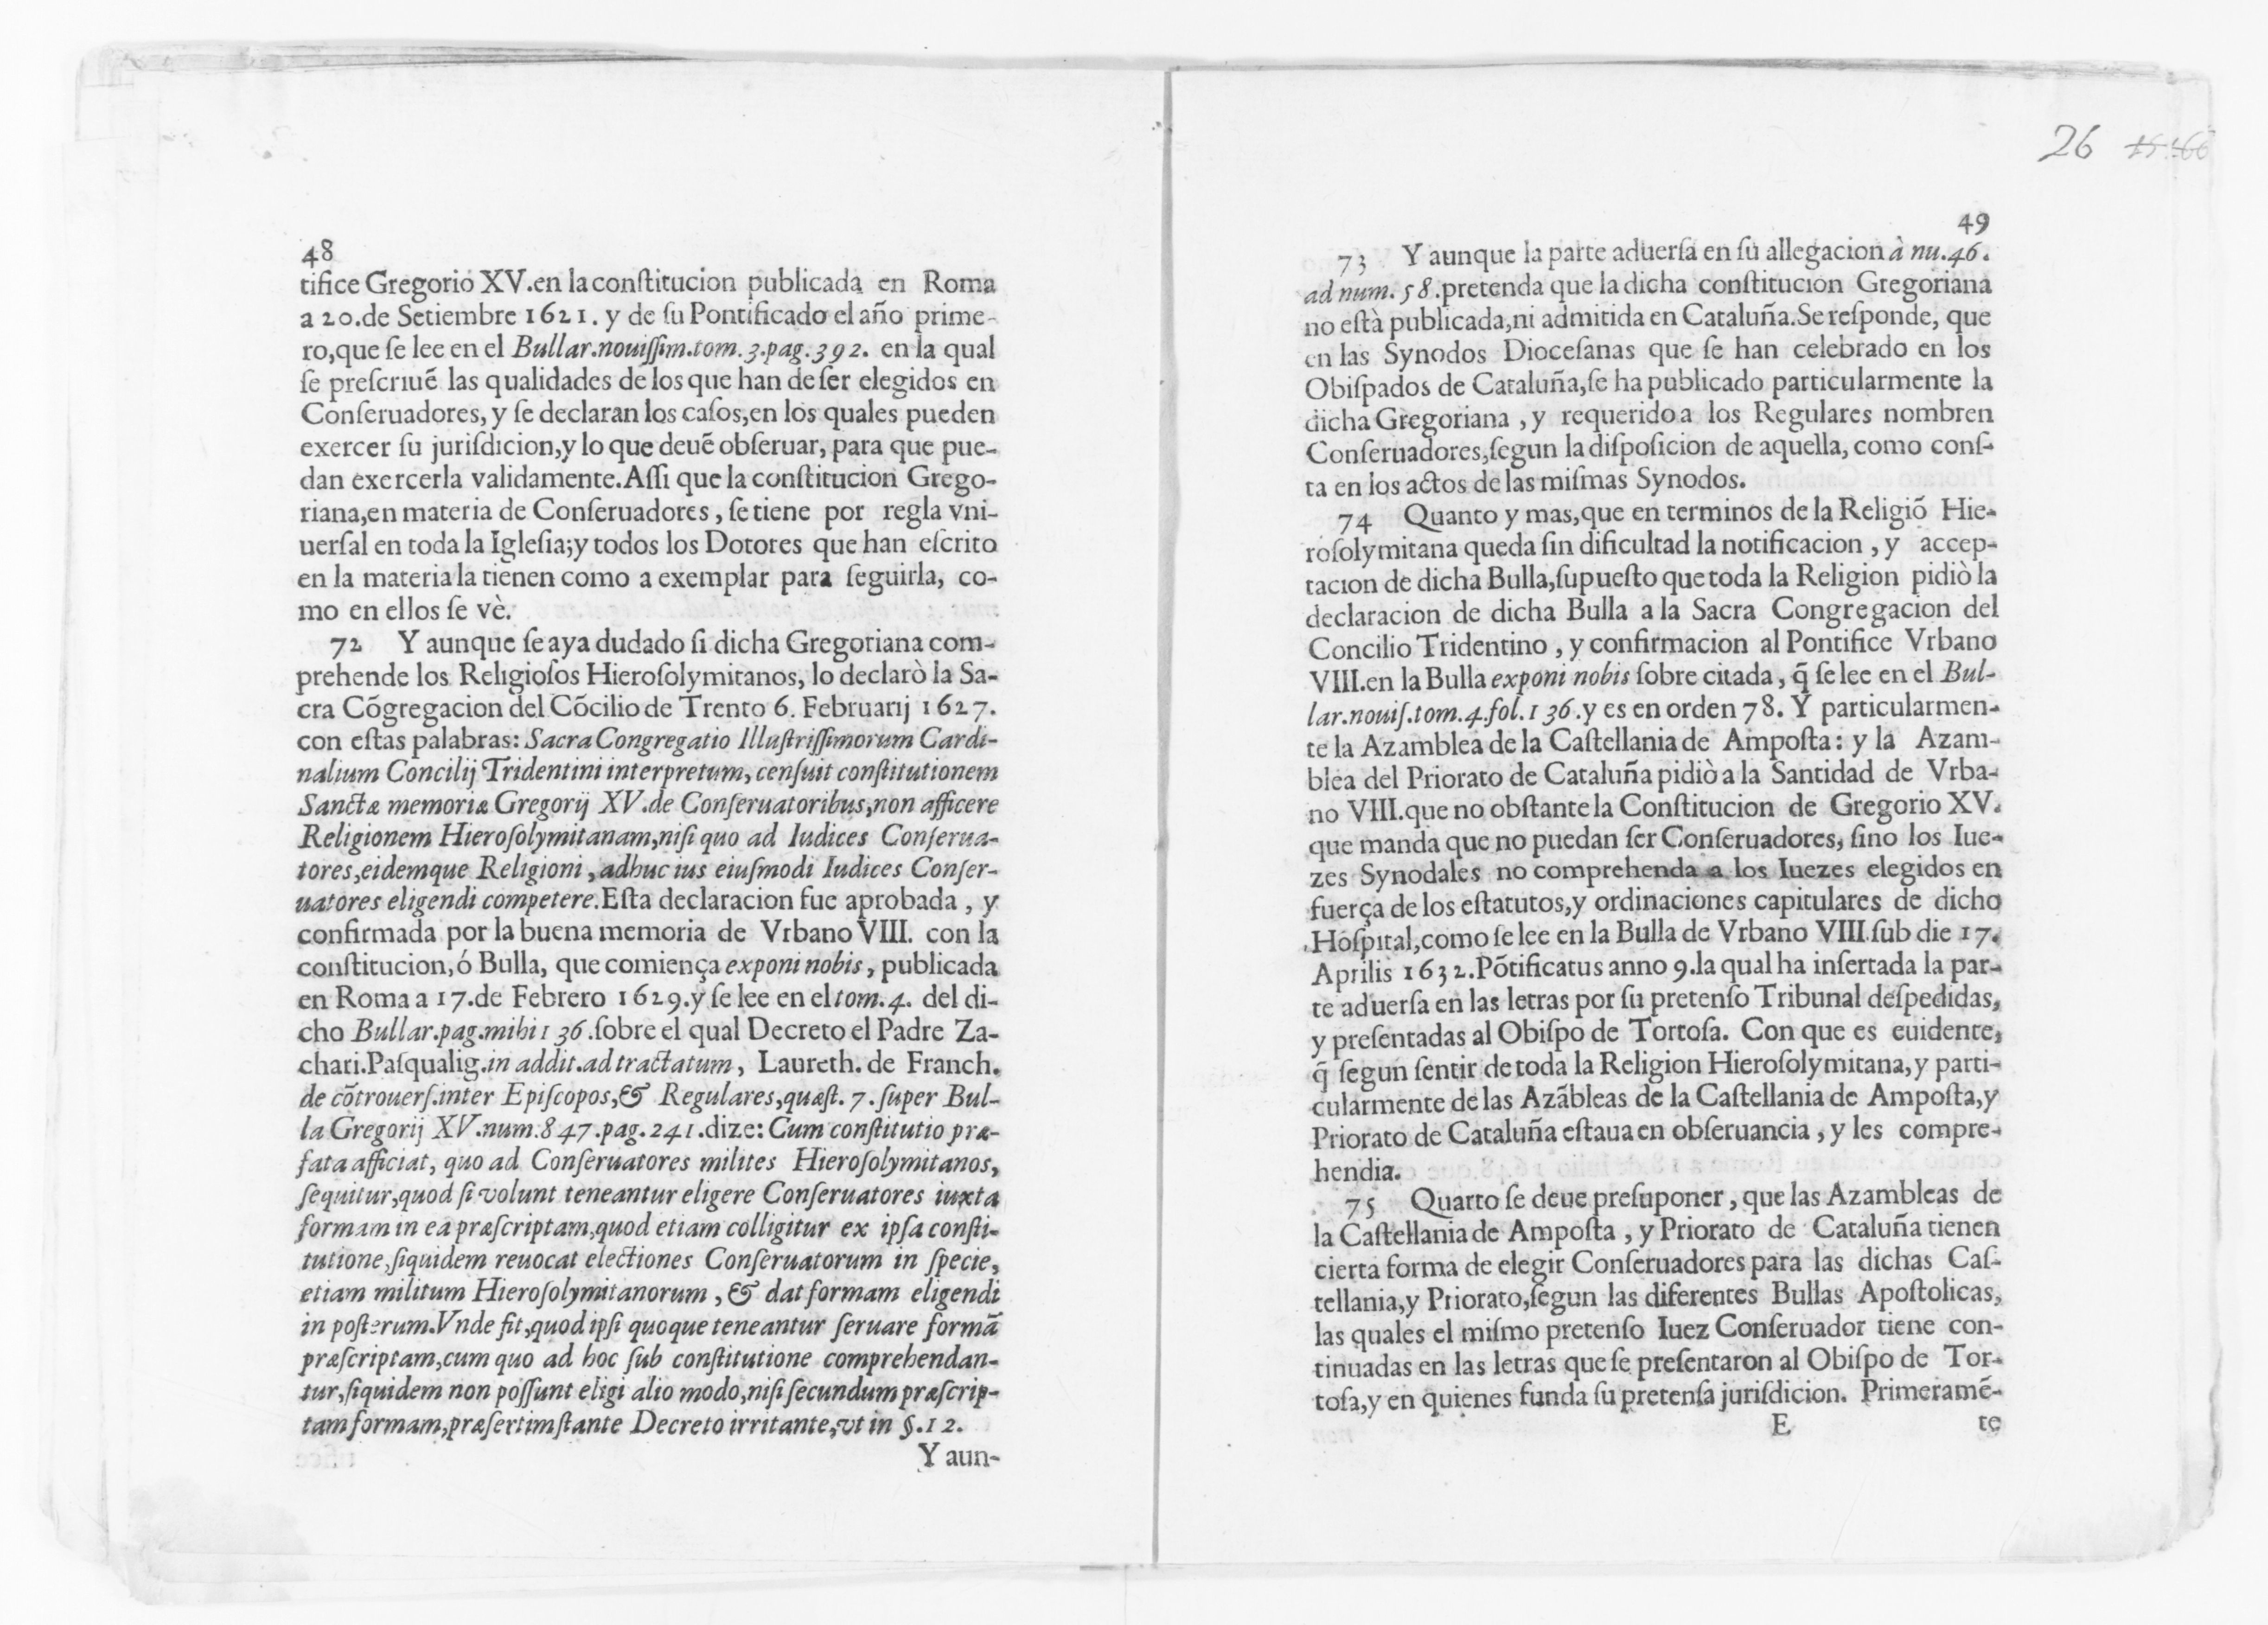 48
tifice Gregorio XV.en la conſtitucion publicada en Roma
a 20.de Setiembre 1621. y de ſu Pontificado el año prime-
ro,que ſe lee en el Bullar.nouiſſim.tom.3.pag.392. en la qual
ſe preſcriuẽ las qualidades de los que han de ſer elegidos en
Conſeruadores, y ſe declaran los caſos,en los quales pueden
exercer ſu juriſdicion,y lo que deuẽ obſeruar, para que pue-
dan exercerla validamente.Aſſi que la conſtitucion Grego-
riana,en materia de Conſeruadores , ſe tiene por regla vni-
uerſal en toda la Igleſia;y todos los Dotores que han eſcrito
en la materia la tienen como a exemplar para ſeguirla, co-
mo en ellos ſe vè.
72 Y aunque ſe aya dudado ſi dicha Gregoriana com-
prehende los Religioſos Hieroſolymitanos, lo declarò la Sa-
cra Cõgregacion del Cõcilio de Trento 6. Februarij 1627.
con eſtas palabras: Sacra Congregatio Illuſtriſſimorum Cardi-
nalium Concilij Tridentini interpretum, cenſuit conſtitutionem
Sanctæ memoriæ Gregorij XV.de Conſeruatoribus,non afficere
Religionem Hieroſolymitanam,niſi quo ad Iudices Conſerua-
tores,eidemque Religioni , adhuc ius eiuſmodi Iudices Conſer-
uatores eligendi competere.Eſta declaracion fue aprobada , y
confirmada por la buena memoria de Vrbano VIII. con la
conſtitucion,ó Bulla, que comiença exponi nobis , publicada
en Roma a 17.de Febrero 1629.y ſe lee en el tom.4. del di-
cho Bullar.pag.mihi 136.ſobre el qual Decreto el Padre Za-
chari.Paſqualig.in addit.ad tractatum, Laureth. de Franch.
de cõtrouerſ.inter Epiſcopos,& Regulares,quæſt. 7.ſuper Bul-
la Gregorij XV.num.847.pag.241.dize: Cum conſtitutio præ-
fata afficiat, quo ad Conſeruatores milites Hieroſolymitanos,
ſequitur,quod ſi volunt teneantur eligere Conſeruatores iuxta
formam in ea præſcriptam,quod etiam colligitur ex ipſa conſti-
tutione,ſiquidem reuocat electiones Conſeruatorum in ſpecie,
etiam militum Hieroſolymitanorum , & dat formam eligendi
in poſterum.Vnde fit,quod ipſi quoque teneantur ſeruare formã
præſcriptam,cum quo ad hoc ſub conſtitutione comprehendan-
tur,ſiquidem non poſſunt eligi alio modo,niſi ſecundum præſcrip-
tam formam,præſertim ſtante Decreto irritante,vt in §.12.
Y aun-
26
49
73 Y aunque la parte aduerſa en ſu allegacion à nu.46.
ad num.58.pretenda que la dicha conſtitucion Gregoriana
no eſtà publicada,ni admitida en Cataluña.Se reſponde, que
en las Synodos Dioceſanas que ſe han celebrado en los
Obiſpados de Cataluña,ſe ha publicado particularmente la
dicha Gregoriana , y requerido a los Regulares nombren
Conſeruadores,ſegun la diſpoſicion de aquella, como conſ-
ta en los actos de las miſmas Synodos.
74 Quanto y mas,que en terminos de la Religiõ Hie-
roſolymitana queda ſin dificultad la notificacion , y accep-
tacion de dicha Bulla,ſupueſto que toda la Religion pidiò la
declaracion de dicha Bulla a la Sacra Congregacion del
Concilio Tridentino , y confirmacion al Pontifice Vrbano
VIII.en la Bulla exponi nobis ſobre citada , q̃ ſe lee en el Bul-
lar.nouiſ.tom.4.fol.136.y es en orden 78. Y particularmen-
te la Azamblea de la Caſtellania de Ampoſta: y la Azam-
blea del Priorato de Cataluña pidiò a la Santidad de Vrba-
no VIII.que no obſtante la Conſtitucion de Gregorio XV.
que manda que no puedan ſer Conſeruadores, ſino los Iue-
zes Synodales no comprehenda a los Iuezes elegidos en
fuerça de los eſtatutos,y ordinaciones capitulares de dicho
Hoſpital,como ſe lee en la Bulla de Vrbano VIII.ſub die 17.
Aprilis 1632.Põtificatus anno 9.la qual ha inſertada la par-
te aduerſa en las letras por ſu pretenſo Tribunal deſpedidas,
y preſentadas al Obiſpo de Tortoſa. Con que es euidente,
q̃ ſegun ſentir de toda la Religion Hieroſolymitana,y parti-
cularmente de las Azãbleas de la Caſtellania de Ampoſta,y
Priorato de Cataluña eſtaua en obſeruancia , y les compre-
hendia.
75 Quarto ſe deue preſuponer , que las Azambleas de
la Caſtellania de Ampoſta , y Priorato de Cataluña tienen
cierta forma de elegir Conſeruadores para las dichas Caſ-
tellania,y Priorato,ſegun las diferentes Bullas Apoſtolicas,
las quales el miſmo pretenſo Iuez Conſeruador tiene con-
tinuadas en las letras que ſe preſentaron al Obiſpo de Tor-
toſa,y en quienes funda ſu pretenſa juriſdicion. Primeramẽ-
E te